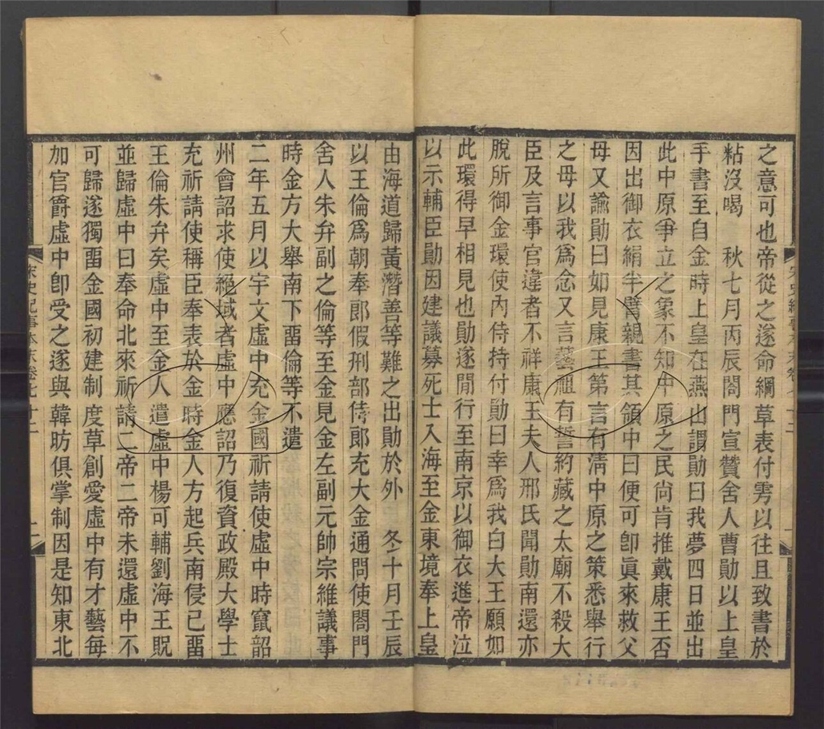 之意可也帝從之遂命綱草表付雱以往且致書於
粘沒喝 秋七月丙辰閤門宣贊舍人曹勛以上皇
手書至自金時上皇在燕山謂勛曰我夢四日並出
此中原爭立之象不知中原之民尚肯推戴康王否
因出御衣絹半臂親書其領中曰便可卽眞來救父
母又諭勛曰如見康王第言有淸中原之策悉舉行
之毋以我爲念又言藝祖有誓約藏之太廟不殺大
臣及言事官違者不祥康王夫人邢氏聞勛南還亦
脫所御金環使內侍持付勛曰幸爲我白大王願如
此環得早相見也勛遂閒行至南京以御衣進帝泣
以示輔臣勛因建議募死士入海至金東境奉上皇
由海道歸黃潛善等難之出勛於外 冬十月壬辰
以王倫爲朝奉郎假刑部侍郎充大金通問使閤門
舍人朱弁副之倫等至金見金左副元帥宗維議事
時金方大舉南下畱倫等不遣
二年五月以宇文虛中充金國祈請使虛中時竄韶
州會詔求使絕域者虛中應詔乃復資政殿大學士
充祈請使稱臣奉表於金時金人方起兵南侵已畱
王倫朱弁矣虛中至金人遣虛中楊可輔劉海王貺
並歸虛中曰奉命北來祈請二帝二帝未還虛中不
可歸遂獨畱金國初建制度草創愛虛中有才藝每
加官爵虛中卽受之遂與韓昉俱掌制因是知東北
宋史紀事本末卷七十二